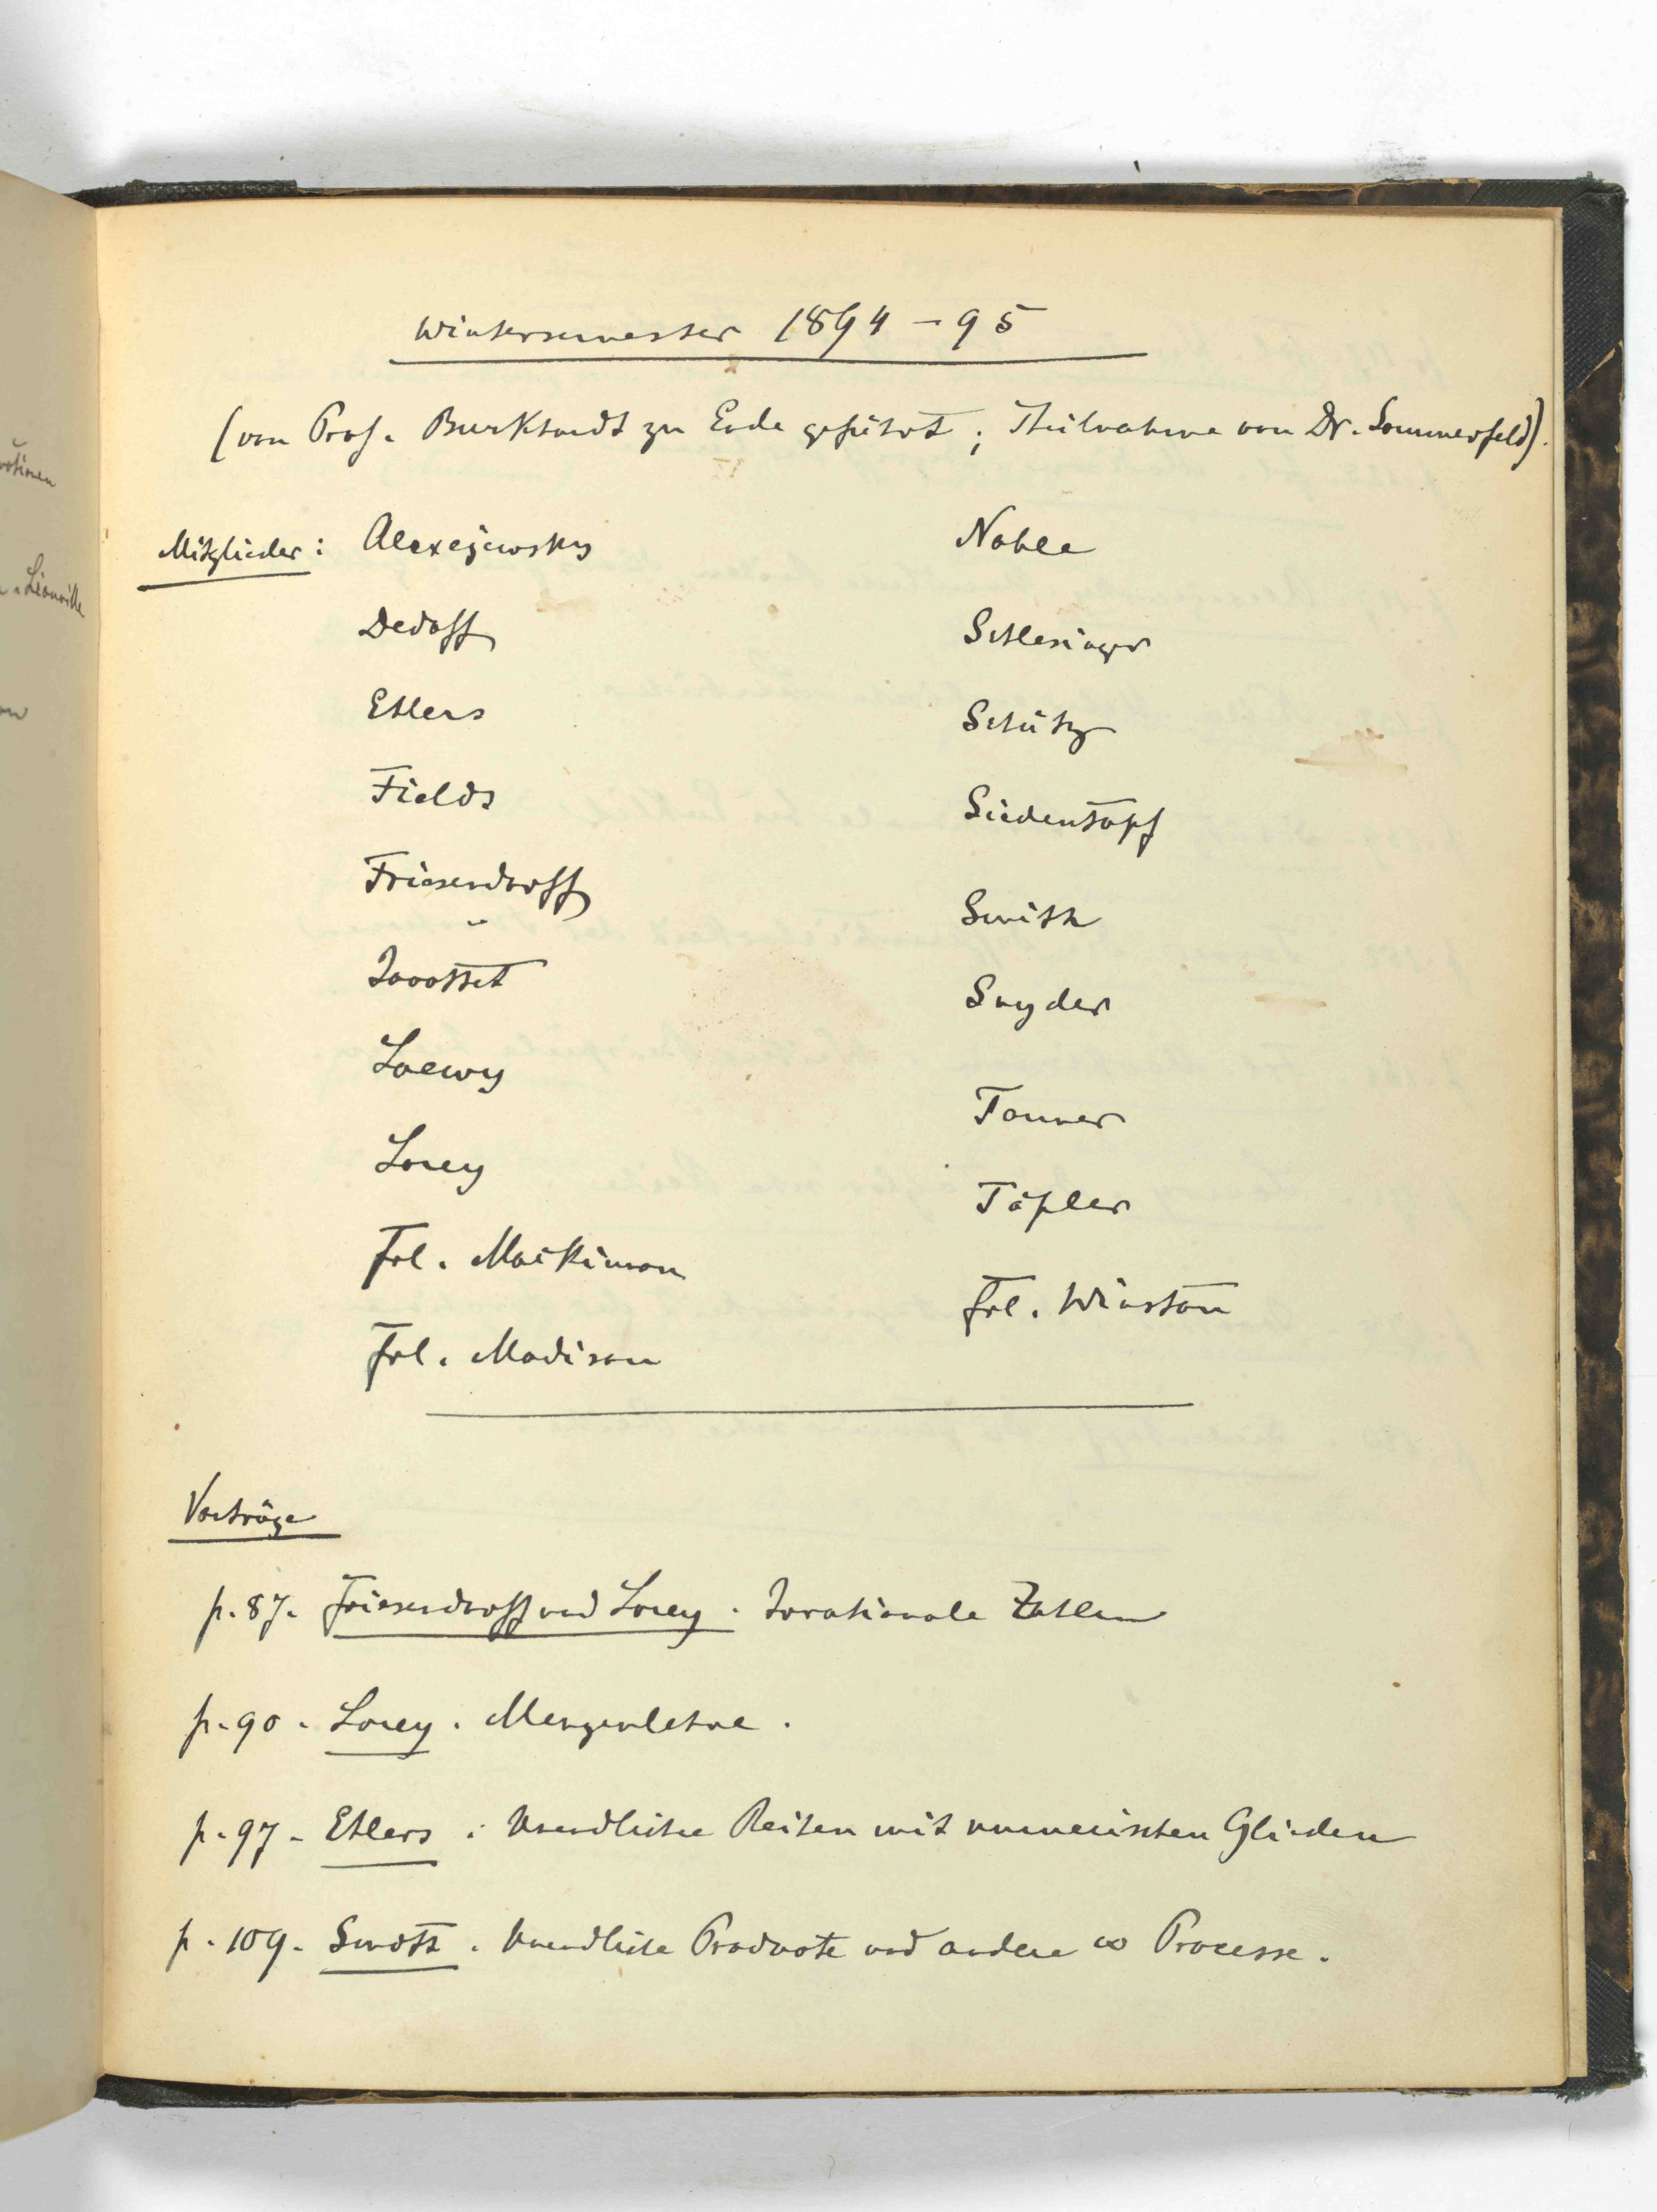 Liouville
Wintersemester 1894–95
(von Prof. Burkhardt zu Ende geführt; Theilnahme von Dr. Sommerfeld).
Mitglieder: Alexejewsky
Dedoff
Ehlers
Fields
Friesendorff
Loewy
Lorey
Frl. Mackinnon
Frl. Madison
Noble
Schlesinger
Schütz
Siedentopf
Smith
Snyder
Tanner
Töpler
Frl. Winston
Vorträge
p. 87. Friesendorff und Lorey. Irrationale Zahlen
p. 90. Lorey. Mengenlehre.
p. 97. Ehlers: Unendliche Reihen mit numerischen Gliedern
p. 109. Smith. Unendliche Producte und andere ∞ Processe.